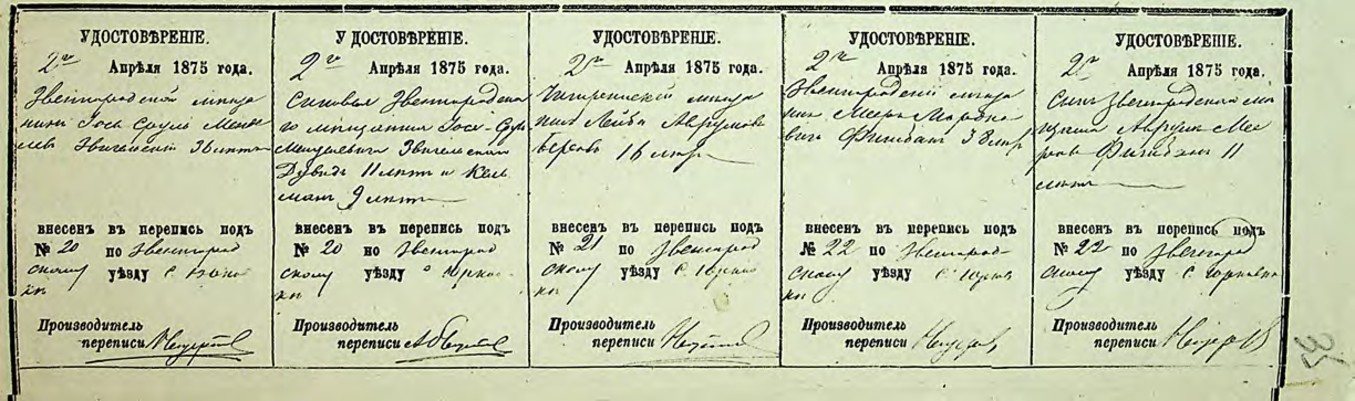 УДОСТОВѢРЕНІЕ.
2го Апрѣля 1875 года.
Звенигородскій мѣща
нинъ Іось Сруль Менде
левъ 36 лѣтъ
внесенъ въ перепись подъ
№ 20 по Звенигород
скому уѣзду с. Юрков
ки
Производитель
переписи
УДОСТОВѢРЕНІЕ.
2го Апрѣля 1875 года.
Сыновья Звенигородска
го мѣщанина Іося-Сруля
Менделевича
Дувидъ 11 лѣтъ и Кель
манъ 9 лѣтъ
внесенъ въ перепись подъ
№ 20 по Звенигород
скому уѣзду с. Юрков
ки
Производитель
переписи
УДОСТОВѢРЕНІЕ.
2го Апрѣля 1875 года.
Чигиринскій мѣща
нинъ Лейба Аврумовъ
16 лѣтъ
внесенъ въ перепись подъ
№ 21 по Звенигород
скому уѣзду с. Юрков
ки
Производитель
переписи
УДОСТОВѢРЕНІЕ.
2го Апрѣля 1875 года.
Звенигородскій мѣща
нинъ Мееръ Мордко
вичъ 38 лѣтъ
внесенъ въ перепись подъ
№ 22 по Звенигород
скому уѣзду с. Юрков
ки
Производитель
переписи
УДОСТОВѢРЕНІЕ.
2го Апрѣля 1875 года.
Сынъ Звенигородскаго мѣ
щанина Аврумъ Мее
ровъ 11
лѣтъ
внесенъ въ перепись подъ
№ 22 по Звенигород
скому уѣзду с. Юрковка
Производитель
переписи